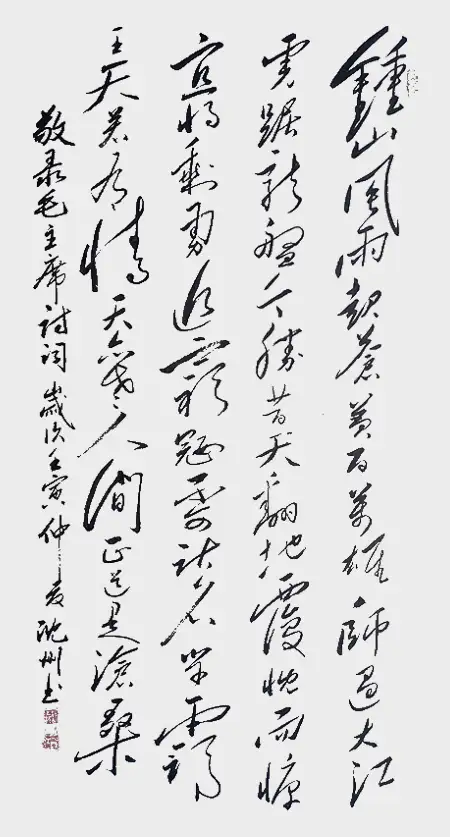 鍾山風雨起蒼黃百萬雄師過大江
虎踞龍盤今勝昔天翻地覆慨而慷
宜將剩勇追窮寇不可沽名學霸
王天若有情天亦老人間正道是滄桑
敬录毛主席詩詞歲次壬寅仲夏州书